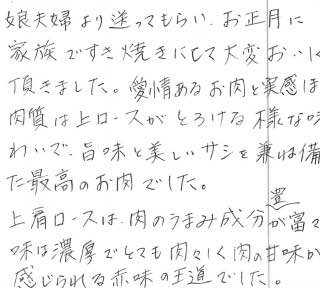 娘夫婦より送ってもらい、お正月に
家族ですき焼きにして大変おいし
頂きました。愛情あるお肉と実感
肉質は上ロースがとろける様な味
わいで、旨味と美しいサシを兼ね備
た最高のお肉でした。
豊
上肩ロースは、肉のうまみ成分が富
味は濃厚でとても肉々しく肉の甘味が
感じられる赤味の王道でした。